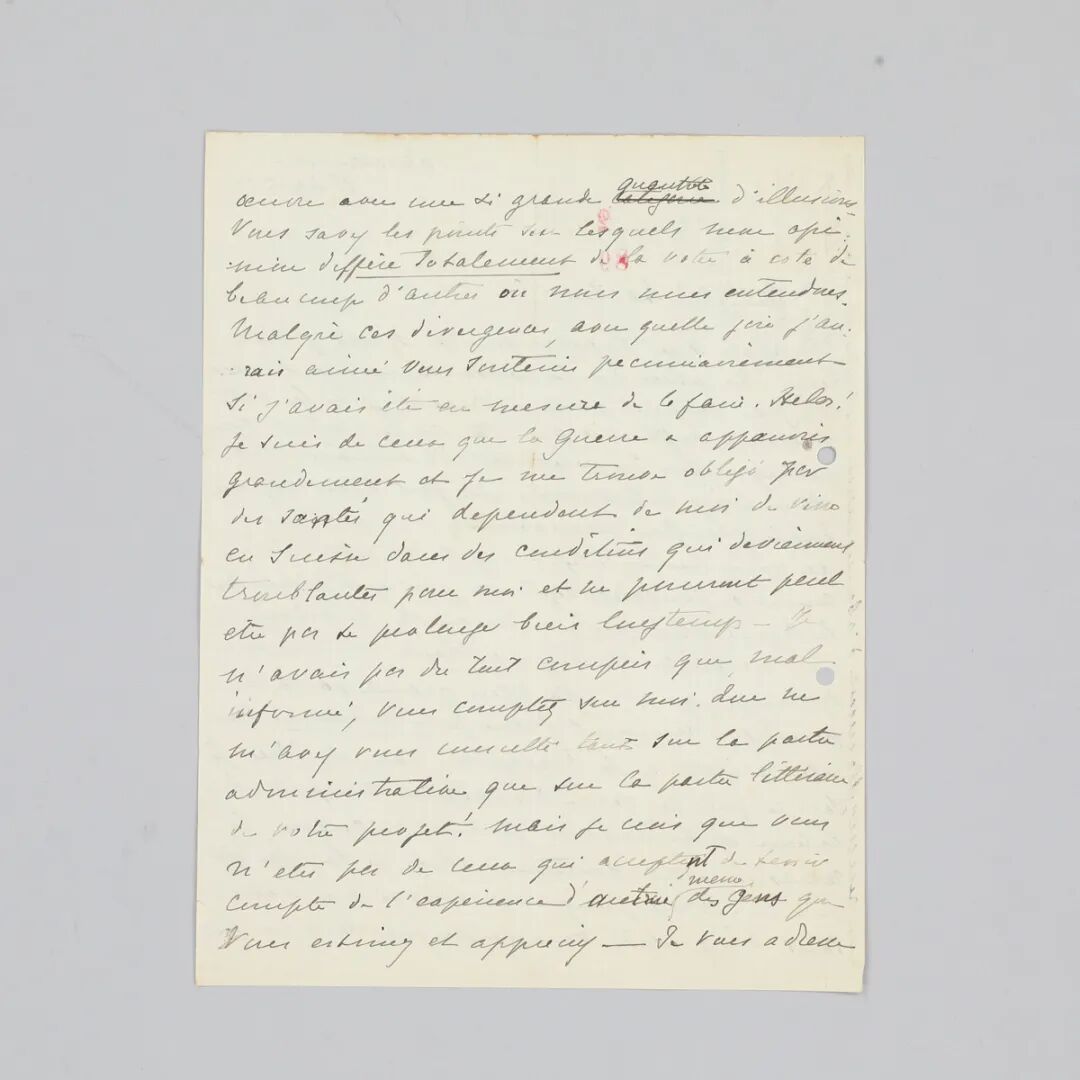 œuvre avec une si grande quantité d'illusions.
Vous savez les points sur lesquels mon opi-
nion diffère totalement de la votre à coté de
beaucoup d'autres où nous nous entendons.
Malgré ces divergences, avec quelle joie j'au-
rais aimé vous soutenir pecuniairement
si j'avais été en mesure de le faire. Helas!
Je suis de ceux que la Guerre a appauvris
grandement et je me trouve obligé par
des santés qui dependent de moi de vivre
en Suisse dans des conditions qui deviennent
troublantes pour moi et ne pourront peut
etre pas se prolonger bien longtemps - Je
n'avais pas du tout compris que mal
informé, vous comptiez sur moi. Que ne
m'avez vous consulté tant sur la partie
administrative que sur la partie littéraire
de votre projet! Mais je crois que vous
n'etes pas de ceux qui acceptent de tenir
compte de l'expérience d'autrui, meme des gens que
vous estimez et appreciez — Je vous adresse